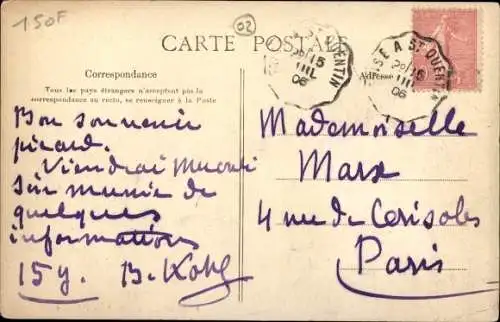 150F
02
CARTE POSTALE
Correspondance
Tous les pays étrangers n'acceptent pas la
correspondance au recto, se renseigner à la Poste
Adresse
A ST QUENTIN
15
06
Bon souvenir
picard.
Viendrai
soir munie de
quelques
informations
15 y. B. Kohl
Mademoiselle
Marx
4 rue de Cerisoles
Paris